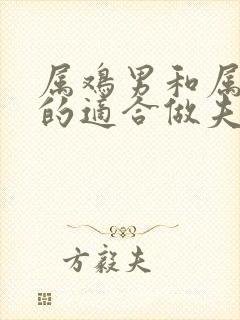 属鸡男和属
的适合做夫
方毅夫